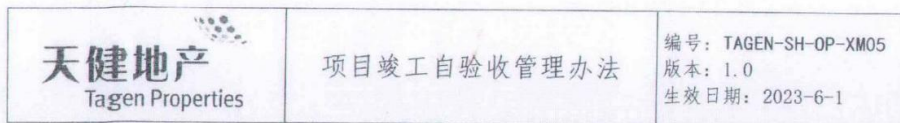 天健地产
Tagen Properties
项目竣工自验收管理办法
编号：TAGEN-SH-OP-XM05
版本：1.0
生效日期：2023-6-1